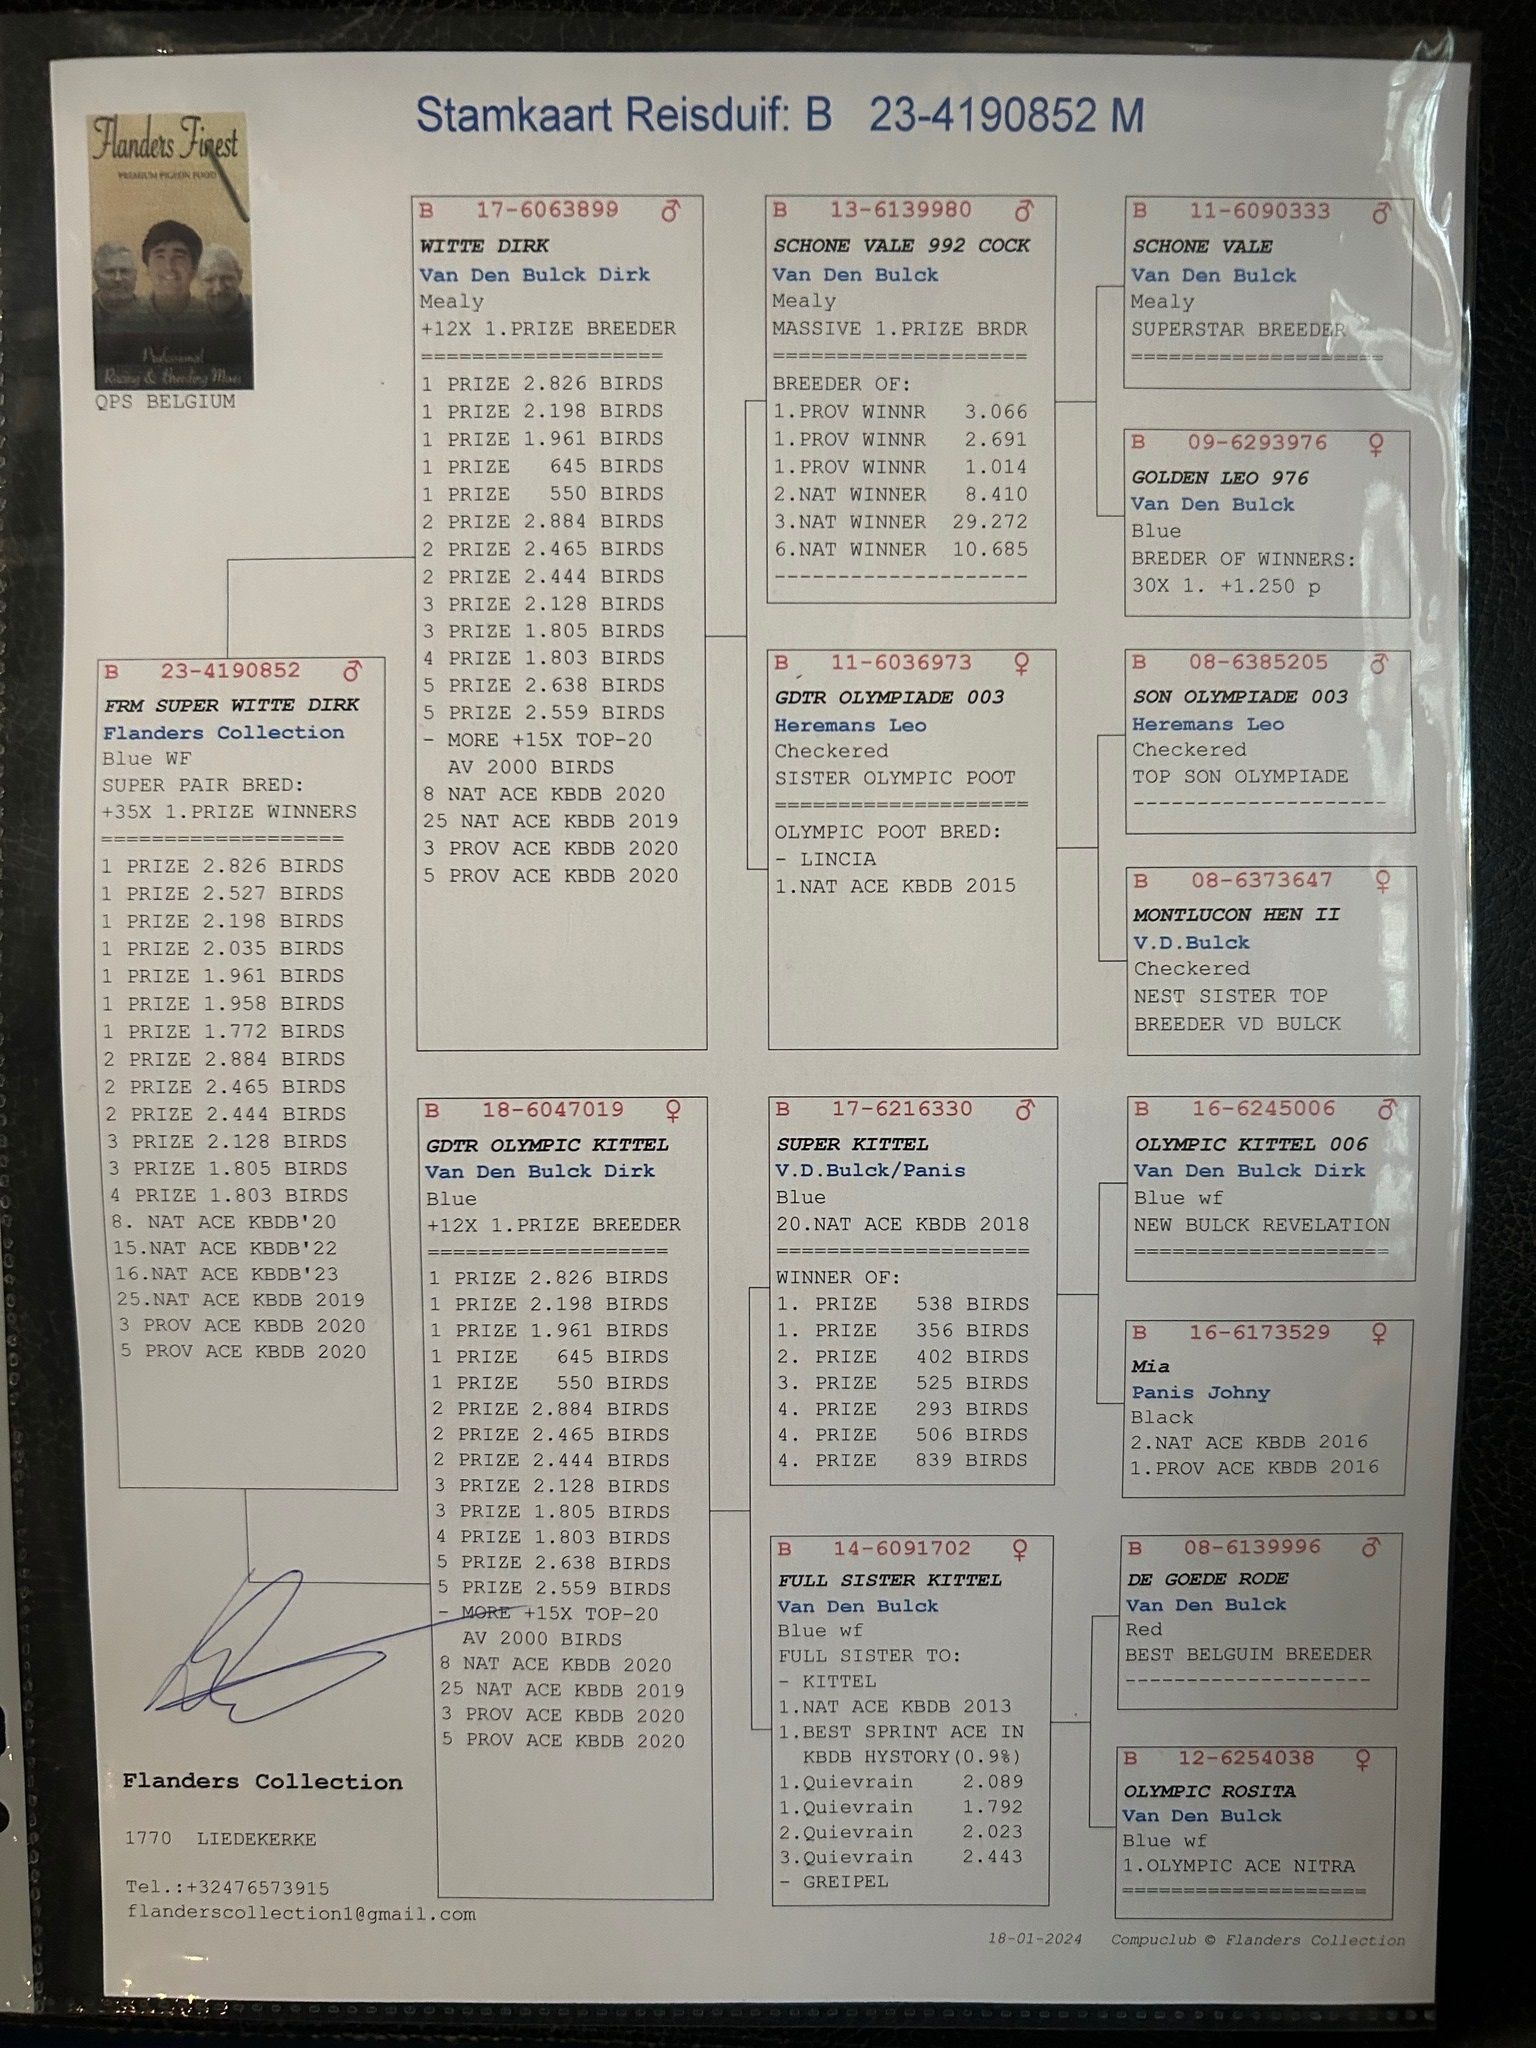 Stamkaart Reisduif: B 23-4190852 M
Flanders Finest
PREMIUM PIGEON FOOD
Professional
Racing & Breeding Mixes
QPS BELGIUM
B 23-4190852 ♂
FRM SUPER WITTE DIRK
Flanders Collection
Blue WF
SUPER PAIR BRED:
+35X 1.PRIZE WINNERS
===================
1 PRIZE 2.826 BIRDS
1 PRIZE 2.527 BIRDS
1 PRIZE 2.198 BIRDS
1 PRIZE 2.035 BIRDS
1 PRIZE 1.961 BIRDS
1 PRIZE 1.958 BIRDS
1 PRIZE 1.772 BIRDS
2 PRIZE 2.884 BIRDS
2 PRIZE 2.465 BIRDS
2 PRIZE 2.444 BIRDS
3 PRIZE 2.128 BIRDS
3 PRIZE 1.805 BIRDS
4 PRIZE 1.803 BIRDS
8. NAT ACE KBDB'20
15.NAT ACE KBDB'22
16.NAT ACE KBDB'23
25.NAT ACE KBDB 2019
3 PROV ACE KBDB 2020
5 PROV ACE KBDB 2020
B 17-6063899 ♂
WITTE DIRK
Van Den Bulck Dirk
Mealy
+12X 1.PRIZE BREEDER
===================
1 PRIZE 2.826 BIRDS
1 PRIZE 2.198 BIRDS
1 PRIZE 1.961 BIRDS
1 PRIZE 645 BIRDS
1 PRIZE 550 BIRDS
2 PRIZE 2.884 BIRDS
2 PRIZE 2.465 BIRDS
2 PRIZE 2.444 BIRDS
3 PRIZE 2.128 BIRDS
3 PRIZE 1.805 BIRDS
4 PRIZE 1.803 BIRDS
5 PRIZE 2.638 BIRDS
5 PRIZE 2.559 BIRDS
- MORE +15X TOP-20
AV 2000 BIRDS
8 NAT ACE KBDB 2020
25 NAT ACE KBDB 2019
3 PROV ACE KBDB 2020
5 PROV ACE KBDB 2020
B 18-6047019 ♀
GDTR OLYMPIC KITTEL
Van Den Bulck Dirk
Blue
+12X 1.PRIZE BREEDER
===================
1 PRIZE 2.826 BIRDS
1 PRIZE 2.198 BIRDS
1 PRIZE 1.961 BIRDS
1 PRIZE 645 BIRDS
1 PRIZE 550 BIRDS
2 PRIZE 2.884 BIRDS
2 PRIZE 2.465 BIRDS
2 PRIZE 2.444 BIRDS
3 PRIZE 2.128 BIRDS
3 PRIZE 1.805 BIRDS
4 PRIZE 1.803 BIRDS
5 PRIZE 2.638 BIRDS
5 PRIZE 2.559 BIRDS
- MORE +15X TOP-20
AV 2000 BIRDS
8 NAT ACE KBDB 2020
25 NAT ACE KBDB 2019
3 PROV ACE KBDB 2020
5 PROV ACE KBDB 2020
B 13-6139980 ♂
SCHONE VALE 992 COCK
Van Den Bulck
Mealy
MASSIVE 1.PRIZE BRDR
====================
BREEDER OF:
1.PROV WINNR 3.066
1.PROV WINNR 2.691
1.PROV WINNR 1.014
2.NAT WINNER 8.410
3.NAT WINNER 29.272
6.NAT WINNER 10.685
--------------------
B 11-6036973 ♀
GDTR OLYMPIADE 003
Heremans Leo
Checkered
SISTER OLYMPIC POOT
====================
OLYMPIC POOT BRED:
- LINCIA
1.NAT ACE KBDB 2015
B 17-6216330 ♂
SUPER KITTEL
V.D.Bulck/Panis
Blue
20.NAT ACE KBDB 2018
====================
WINNER OF:
1. PRIZE 538 BIRDS
1. PRIZE 356 BIRDS
2. PRIZE 402 BIRDS
3. PRIZE 525 BIRDS
4. PRIZE 293 BIRDS
4. PRIZE 506 BIRDS
4. PRIZE 839 BIRDS
B 14-6091702 ♀
FULL SISTER KITTEL
Van Den Bulck
Blue wf
FULL SISTER TO:
- KITTEL
1.NAT ACE KBDB 2013
1.BEST SPRINT ACE IN
KBDB HYSTORY(0.9%)
1.Quievrain 2.089
1.Quievrain 1.792
2.Quievrain 2.023
3.Quievrain 2.443
- GREIPEL
B 11-6090333 ♂
SCHONE VALE
Van Den Bulck
Mealy
SUPERSTAR BREEDER
====================
B 09-6293976 ♀
GOLDEN LEO 976
Van Den Bulck
Blue
BREDER OF WINNERS:
30X 1. +1.250 p
B 08-6385205 ♂
SON OLYMPIADE 003
Heremans Leo
Checkered
TOP SON OLYMPIADE
--------------------
B 08-6373647 ♀
MONTLUCON HEN II
V.D.Bulck
Checkered
NEST SISTER TOP
BREEDER VD BULCK
B 16-6245006 ♂
OLYMPIC KITTEL 006
Van Den Bulck Dirk
Blue wf
NEW BULCK REVELATION
====================
B 16-6173529 ♀
Mia
Panis Johny
Black
2.NAT ACE KBDB 2016
1.PROV ACE KBDB 2016
B 08-6139996 ♂
DE GOEDE RODE
Van Den Bulck
Red
BEST BELGUIM BREEDER
--------------------
B 12-6254038 ♀
OLYMPIC ROSITA
Van Den Bulck
Blue wf
1.OLYMPIC ACE NITRA
====================
Flanders Collection
1770 LIEDEKERKE
Tel.:+32476573915
flanderscollection1@gmail.com
18-01-2024 Compuclub © Flanders Collection